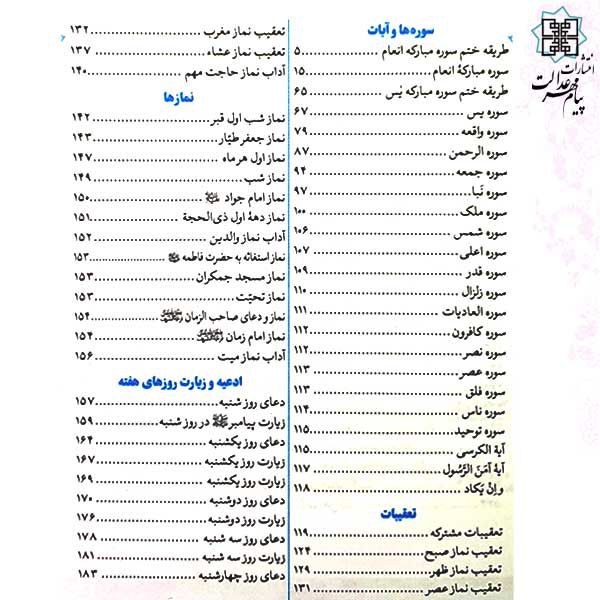 انتشارات
پیام مهر عدالت
سوره‌ها و آیات
طریقه ختم سوره مبارکه انعام ........ ۵
سوره مبارکهٔ انعام ........ ۱۵
طریقه ختم سوره مبارکه یُس ........ ۶۵
سوره یس ........ ۶۷
سوره واقعه ........ ۷۹
سوره الرحمن ........ ۸۷
سوره جمعه ........ ۹۴
سوره نَبا ........ ۹۷
سوره ملک ........ ۱۰۰
سوره شمس ........ ۱۰۶
سوره اعلی ........ ۱۰۷
سوره قدر ........ ۱۰۹
سوره زلزال ........ ۱۱۰
سوره العادیات ........ ۱۱۱
سوره کافرون ........ ۱۱۲
سوره نصر ........ ۱۱۲
سوره عصر ........ ۱۱۳
سوره فلق ........ ۱۱۳
سوره ناس ........ ۱۱۴
سوره توحید ........ ۱۱۵
آیهٔ الکرسی ........ ۱۱۵
آیهٔ آمَنَ الرَّسُول ........ ۱۱۷
وَ اِنْ یَکاد ........ ۱۱۸
تعقیبات
تعقیبات مشترکه ........ ۱۱۹
تعقیب نماز صبح ........ ۱۲۴
تعقیب نماز ظهر ........ ۱۲۹
تعقیب نماز عصر ........ ۱۳۱
تعقیب نماز مغرب ........ ۱۳۲
تعقیب نماز عشاء ........ ۱۳۷
آداب نماز حاجت مهم ........ ۱۴۰
نمازها
نماز شب اول قبر ........ ۱۴۲
نماز جعفر طیّار ........ ۱۴۳
نماز اول هر ماه ........ ۱۴۷
نماز شب ........ ۱۴۹
نماز امام جواد ........ ۱۵۰
نماز دههٔ اول ذی‌الحجة ........ ۱۵۱
آداب نماز والدین ........ ۱۵۲
نماز استغاثه به حضرت فاطمه ........ ۱۵۳
نماز مسجد جمکران ........ ۱۵۳
نماز تحیّت ........ ۱۵۳
نماز و دعای صاحب الزمان ........ ۱۵۴
نماز امام زمان ........ ۱۵۴
آداب نماز میت ........ ۱۵۶
ادعیه و زیارت روزهای هفته
دعای روز شنبه ........ ۱۵۷
زیارت پیامبر ﷺ در روز شنبه ........ ۱۵۹
دعای روز یکشنبه ........ ۱۶۴
زیارت روز یکشنبه ........ ۱۶۷
زیارت روز یکشنبه ........ ۱۶۹
دعای روز دوشنبه ........ ۱۷۰
زیارت روز دوشنبه ........ ۱۷۶
دعای روز سه شنبه ........ ۱۷۸
زیارت روز سه شنبه ........ ۱۸۱
دعای روز چهارشنبه ........ ۱۸۳